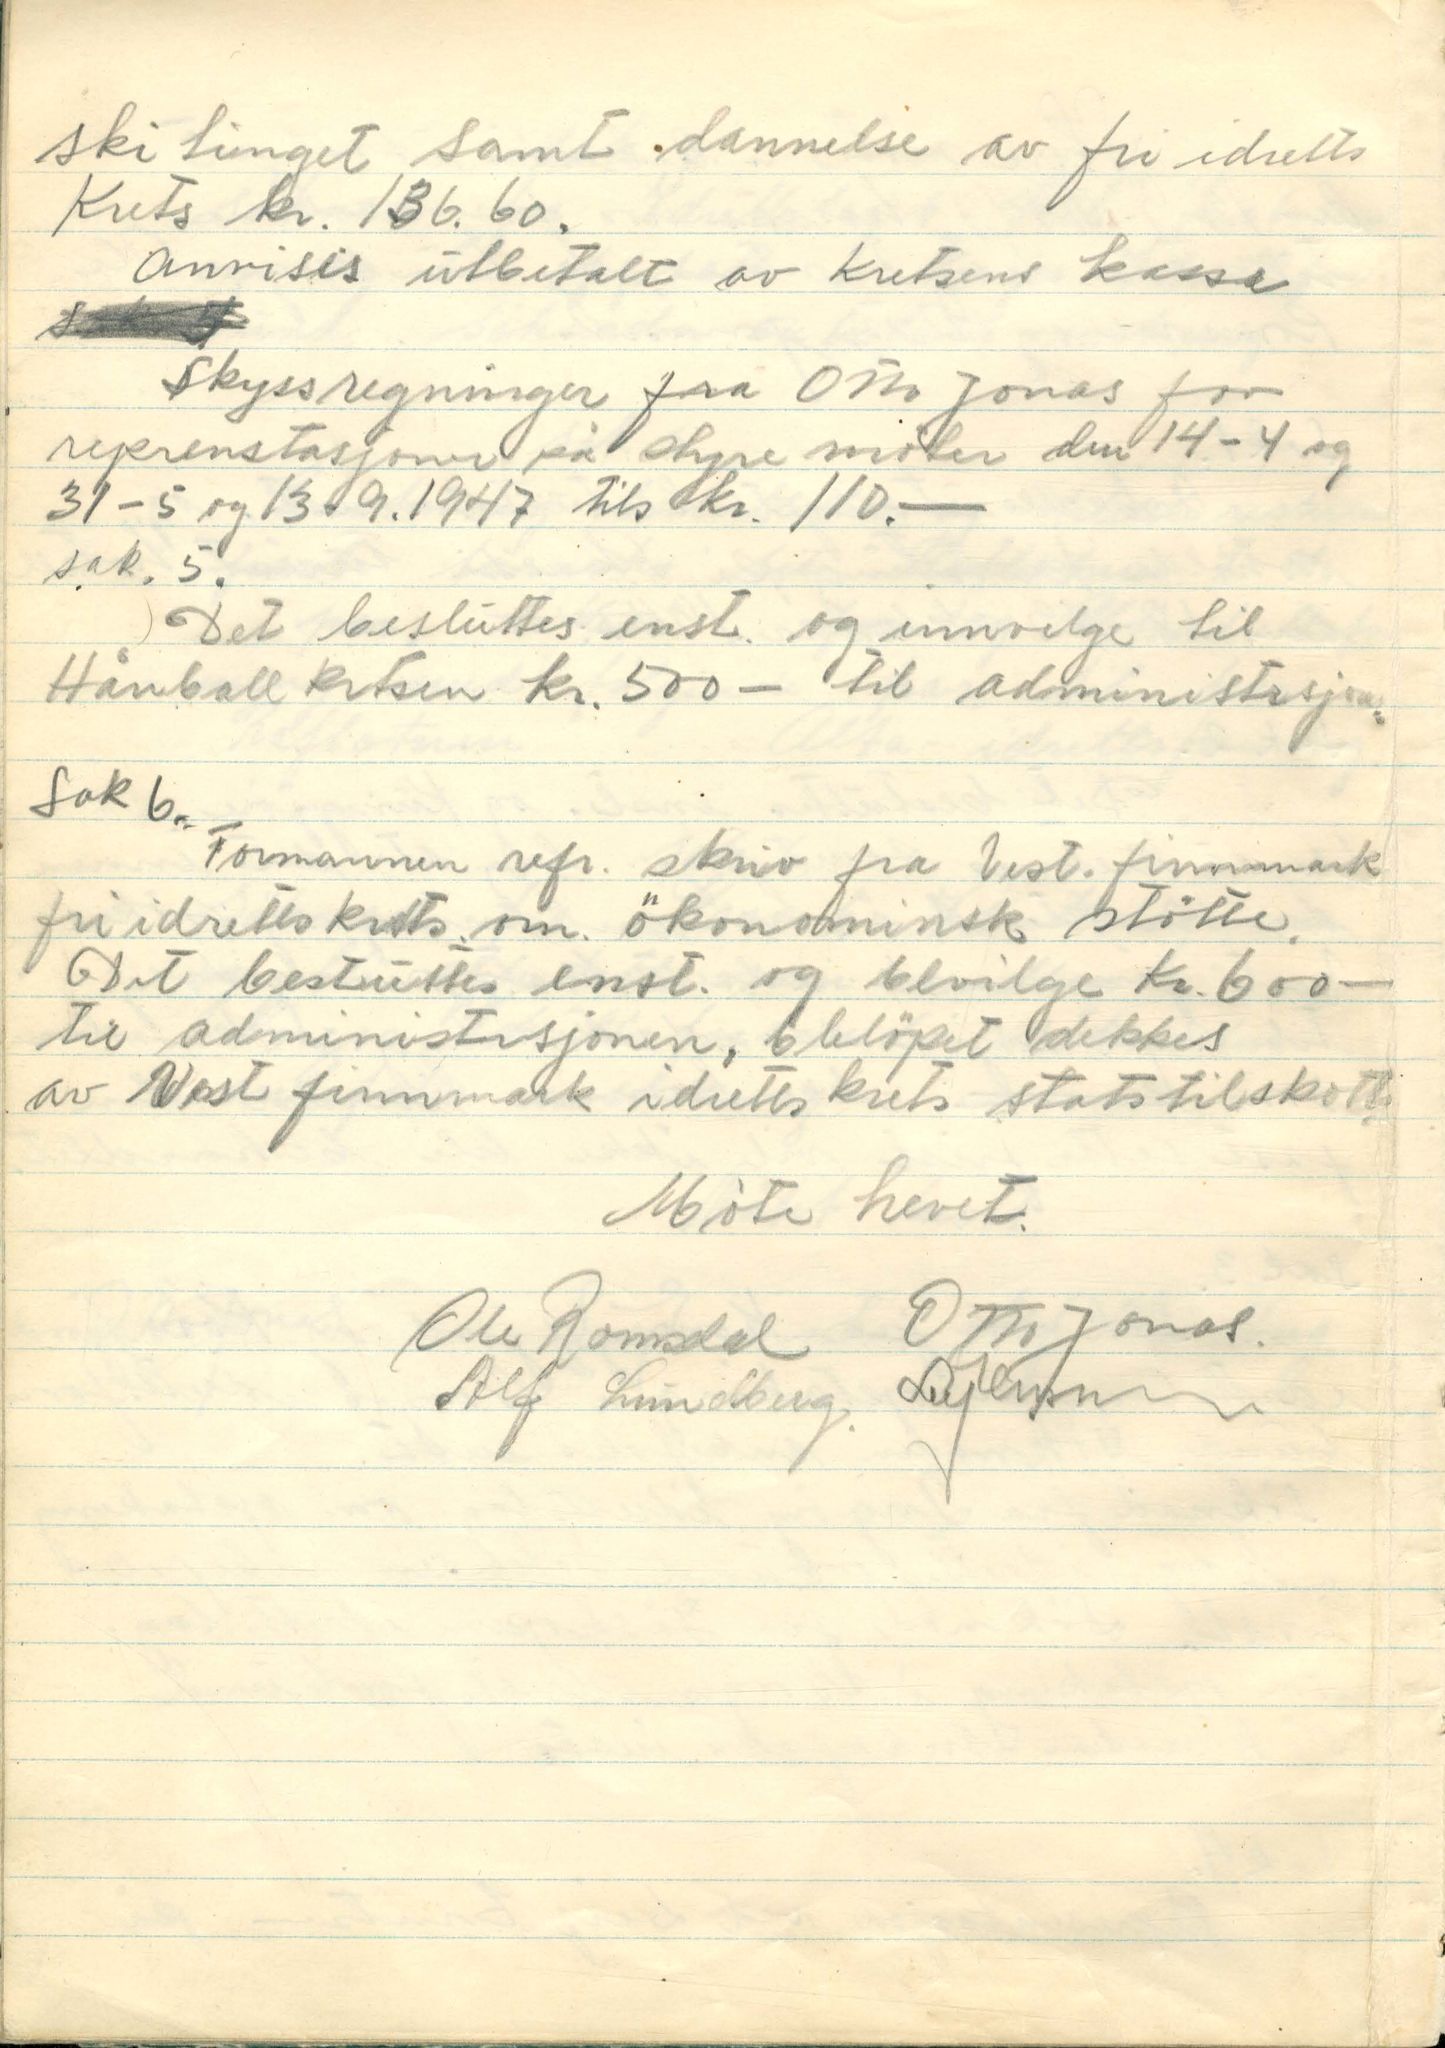 ski tinget samt dannelse av fri idretts
Krets kr. 136.60.
Anvises utbetalt av Kretsens kassa
Skyssregninger fra Otto Jonas for
reprenstasjoner på styre möter den 14-4 og
31-5 og 13.9.1947 tils kr. 110.—
sak. 5.
Det besluttes enst. og innvilge til
Hånball kretsen kr. 500 — til administrsjon.
Sak 6.
Formannen refr. skriv fra Vest. finnmark
fri idretts krets. om. ökonominsk stötte.
Det besluttes enst. og bevilge Kr. 600 —
til administrsjonen, belöpet dekkes
av Vest finnmark idretts krets statstilskott.
Möte hevet.
Ole Romsdal Otto Jonas.
Alf Lundberg.